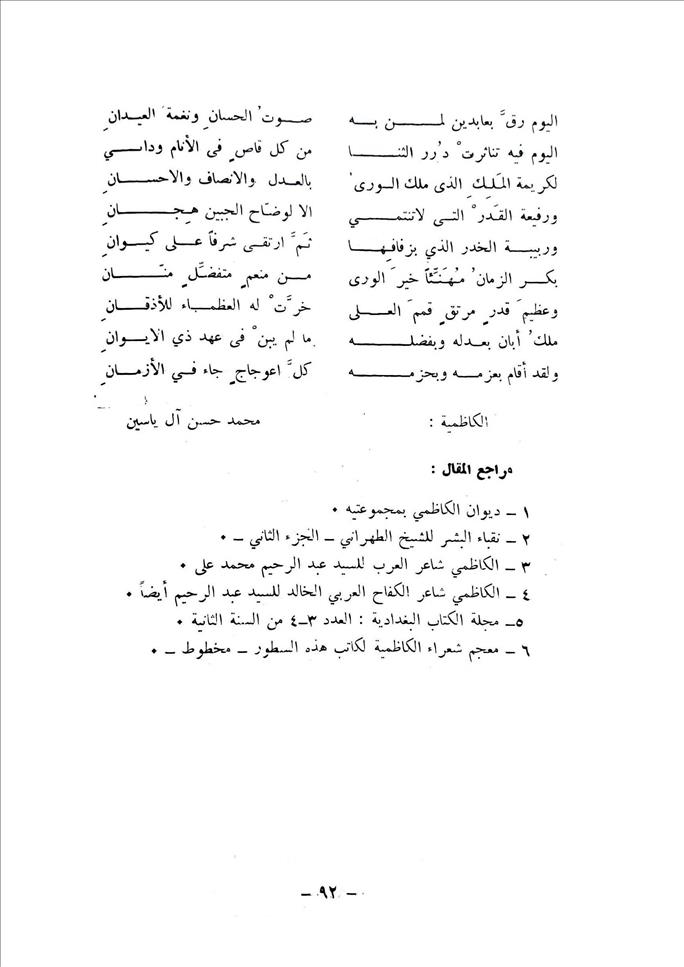 اليوم رقَّ بعابدين لمن به صوتُ الحسانِ ونغمةَ العيدانِ
اليوم فيه تناثرتْ دُرر الثنا من كل قاصٍ في الأنام وداني
لكريمة المَلِكِ الذى ملك الورىُ بالعدل والانصاف والاحسانِ
ورفيعة القَدرْ التى لاتنتمي الا لوضّاح الجبين هجانِ
وربيبة الخدر الذي بزفافِها ثمَّ ارتقى شرفاً على كيوانِ
بكر الزمانُ مُهَنِّئاً خيرَ الورى من منعمٍ متفضّلٍ منّانِ
وعظيمَ قدرٍ مرتقٍ قممَ العلى خرَّتْ له العظماء للأذقانِ
ملكُ أبان بعدله وبفضله ما لم يبنْ فى عهد ذي الايوانِ
ولقد أقام بعزمه وبحزمه كلَّ اعوجاجٍ جاء في الأزمانِ
الكاظمية : محمد حسن آل ياسين
مراجع المقال :
١ ـ ديوان الكاظمي بمجموعتيه ٠
٢ ـ نقباء البشر للشيخ الطهراني ـ الجزء الثاني ـ ٠
٣ ـ الكاظمي شاعر العرب للسيد عبد الرحيم محمد على ٠
٤ ـ الكاظمي شاعر الكفاح العربي الخالد للسيد عبد الرحيم أيضاً ٠
٥ـ مجلة الكتاب البغدادية : العدد ٣ـ٤ من السنة الثانية ٠
٦ ـ معجم شعراء الكاظمية لكاتب هذه السطور ـ مخطوط ـ ٠
ـ ٩٢ ـ